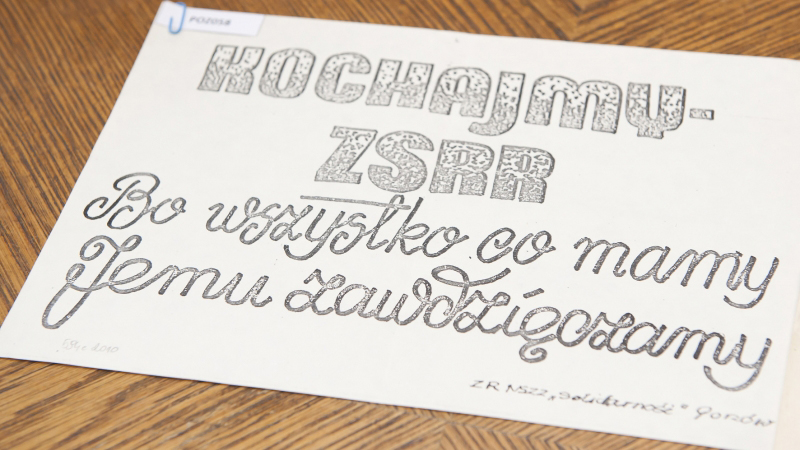 POZ058
KOCHAJMY-
ZSRR
Bo wszystko co mamy
Jemu zawdzięczamy
ZR NSZZ „Solidarność" Gorzów